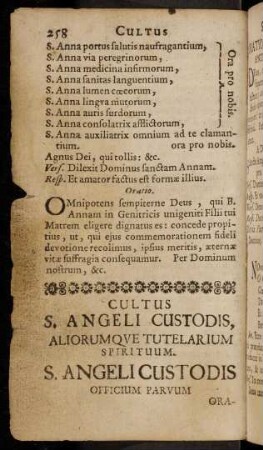 258 CULTUS
S. Anna portus salutis naufragantium,
S. Anna via peregrinorum,
S. Anna medicina infirmorum,
S. Anna sanitas languentium,
S. Anna lumen cœcorum,
S. Anna lingva mutorum,
S. Anna auris surdorum,
S. Anna consolatrix afflictorum,
Ora pro nobis.
S. Anna auxiliatrix omnium ad te claman-
tium. ora pro nobis.
Agnus Dei, qui tollis: &c.
Vers. Dilexit Dominus sanctam Annam.
Resp. Et amator factus est formæ illius.
Oratio.
OMnipotens sempiterne Deus, qui B.
Annam in Genitricis unigeniti Filii tui
Matrem eligere dignatus es: concede propi-
tius, ut, qui ejus commemorationem fideli
devotione recolimus, ipsius meritis, æternæ
vitæ suffragia consequamur. Per Dominum
nostrum, &c.
CULTUS
S. ANGELI CUSTODIS,
ALIORUMQVE TUTELARIUM
SPIRITUUM.
S. ANGELI CUSTODIS
OFFICIUM PARVUM
ORA-